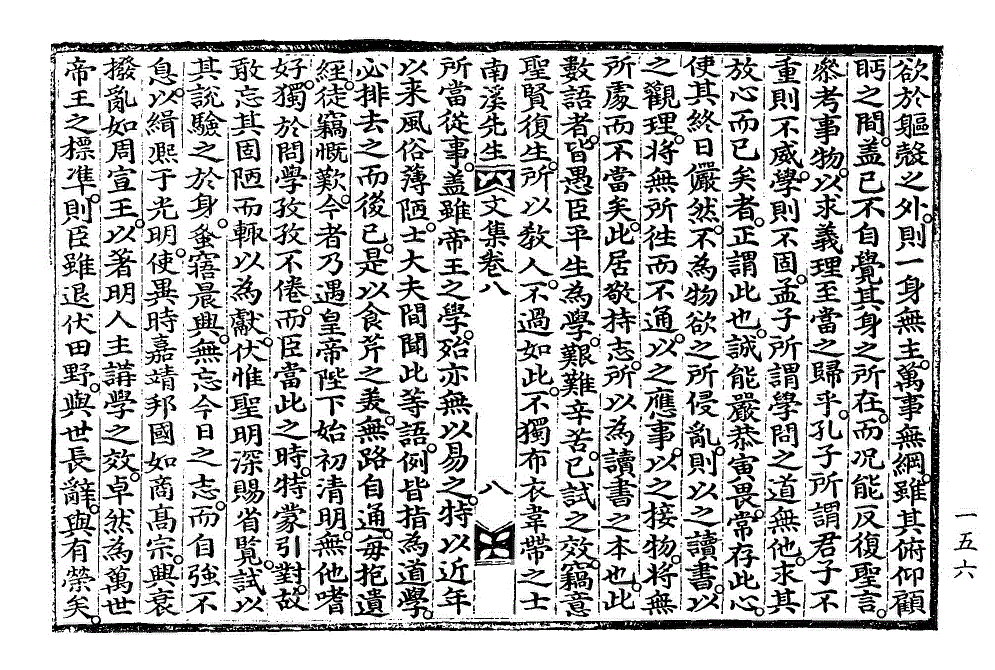 欲於軀殼之外。則一身無主。萬事無綱。雖其俯仰顧
眄之間。蓋已不自覺其身之所在。而况能反復聖言。
叅考事物。以求義理至當之歸乎。孔子所謂君子不
重則不威。學則不固。孟子所謂學問之道無他。求其
放心而已矣者。正謂此也。誠能嚴恭寅畏。常存此心。
使其終日儼然。不為物欲之所侵亂。則以之讀書。以
之觀理。將無所往而不通。以之應事。以之接物。將無
所處而不當矣。此居敬持志。所以為讀書之本也。此
數語者。皆愚臣平生為學。艱難辛苦。已試之效。竊意
聖賢復生。所以敎人。不過如此。不獨布衣韋帶之士
南溪先生文集卷八 八
所當從事。盖雖帝王之學。殆亦無以易之。特以近年
以来。風俗薄陋。士大夫間聞此等語。例皆指為道學。
必排去之而後已。是以食芹之羙。無路自通。每抱遺
經。徒竊慨歎。今者乃遇皇帝陛下始初清明。無他嗜
好。獨於問學孜孜不倦。而臣當此之時。特蒙引對。故
敢忘其固陋而輒以為獻。伏惟聖明深賜省覽。試以
其說驗之於身。蚤寤晨興。無忘今日之志。而自強不
息。以緝熙于光明。使異時嘉靖邦國如商髙宗。興衰
撥亂如周宣王。以著明人主講學之效。卓然為萬世
帝王之標準。則臣雖退伏田野。與世長辭。與有榮矣。
一五六